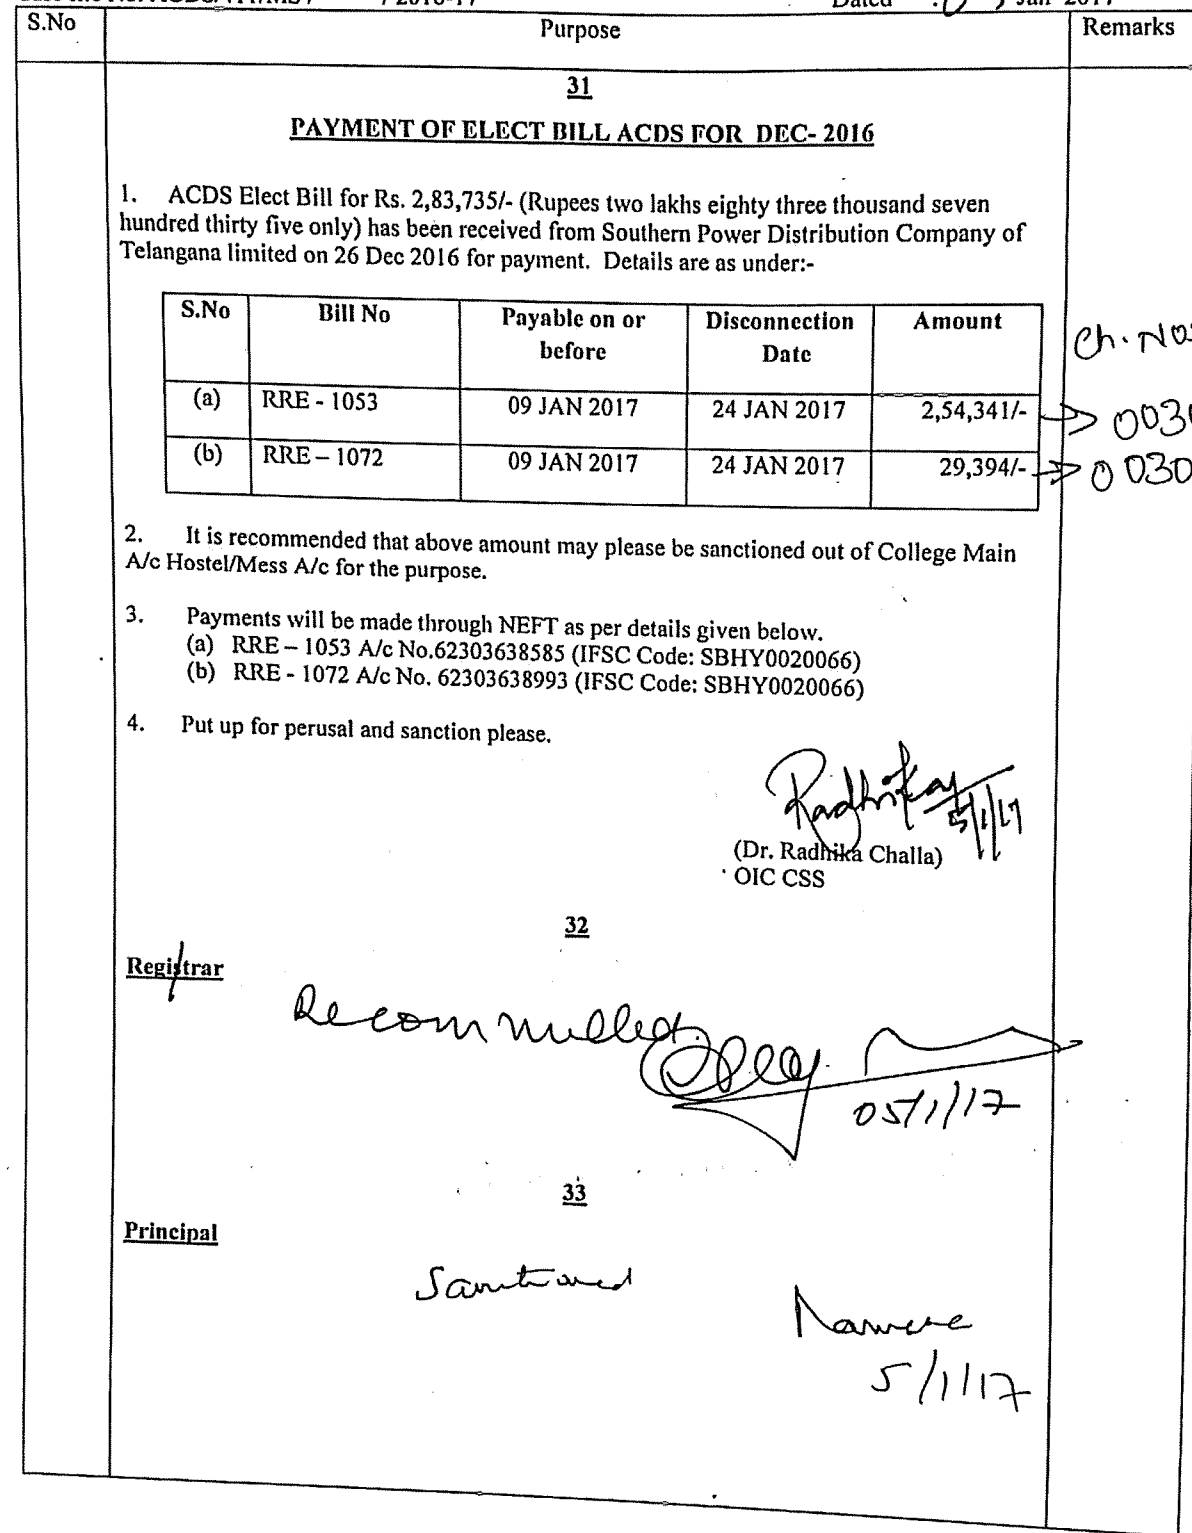 Dated
Jan 2017
S.No
Purpose
Remarks
31
PAYMENT OF ELECT BILL ACDS FOR DEC- 2016
1. ACDS Elect Bill for Rs. 2,83,735/- (Rupees two lakhs eighty three thousand seven
hundred thirty five only) has been received from Southern Power Distribution Company of
Telangana limited on 26 Dec 2016 for payment. Details are as under:-
S.No Bill No Payable on or before Disconnection Date Amount
Ch. No
(a) RRE - 1053 09 JAN 2017 24 JAN 2017 2,54,341/- 003
(b) RRE – 1072 09 JAN 2017 24 JAN 2017 29,394/- 0030
2. It is recommended that above amount may please be sanctioned out of College Main
A/c Hostel/Mess A/c for the purpose.
3. Payments will be made through NEFT as per details given below.
(a) RRE – 1053 A/c No.62303638585 (IFSC Code: SBHY0020066)
(b) RRE - 1072 A/c No. 62303638993 (IFSC Code: SBHY0020066)
4. Put up for perusal and sanction please.
Radhika
5/1/17
(Dr. Radhika Challa)
OIC CSS
32
Registrar
Recommended
05/1/17
33
Principal
Sanctioned
5/1/17